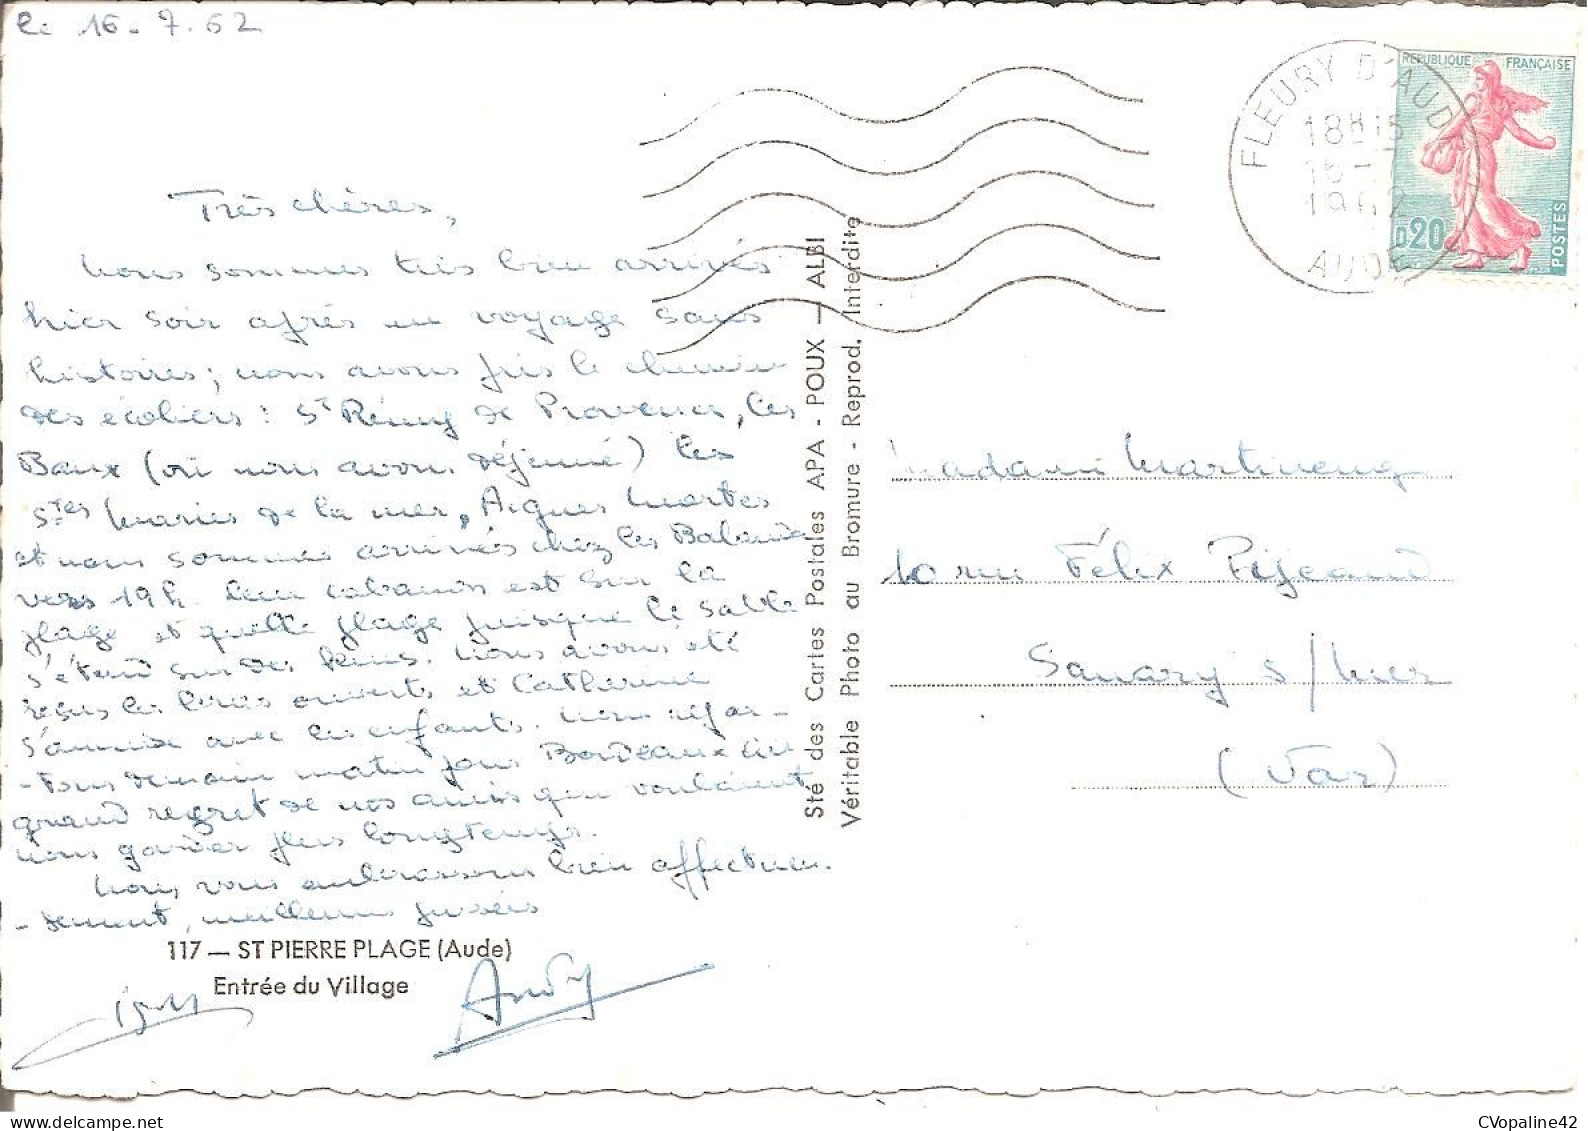 Le 16.7.62
Très chères,
Nous sommes très bien arrivés
hier soir après un voyage sans
histoires; nous avons pris le chemin
des écoliers: St Rémy de Provence, Les
Baux (où nous avons déjeuné) Les
Stes Maries de la mer, Aigues Mortes
et nous sommes arrivés chez les
vers 19h. Leur cabanon est sur la
plage et quelle plage puisque le sable
s'étend sur des Kms. Nous avons été
reçus les bras ouverts et Catherine
s'amuse avec les enfants. Nous repar-
-tons demain matin pour Bordeaux au
grand regret de nos amis qui voulaient
nous garder plus longtemps.
Nous vous embrassons bien affectueu-
-sement, meilleurs
117 — ST PIERRE PLAGE (Aude)
Entrée du Village
Andy
Sté des Cartes Postales APA - POUX — ALBI
Véritable Photo au Bromure - Reprod. Interdite
FLEURY D'AUDE
18H15
16-7
1962
AUDE
REPUBLIQUE FRANÇAISE
0,20
POSTES
Madame Martinenq
10 rue Félix Pijeaud
Sanary s/Mer
(Var)
CVopaline42